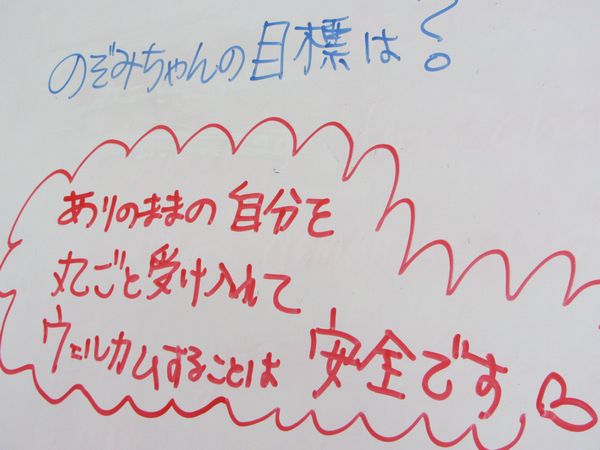 のぞみちゃんの目標は?
ありのままの自分を
丸ごと受け入れて
ウェルカムすることは 安全です♡